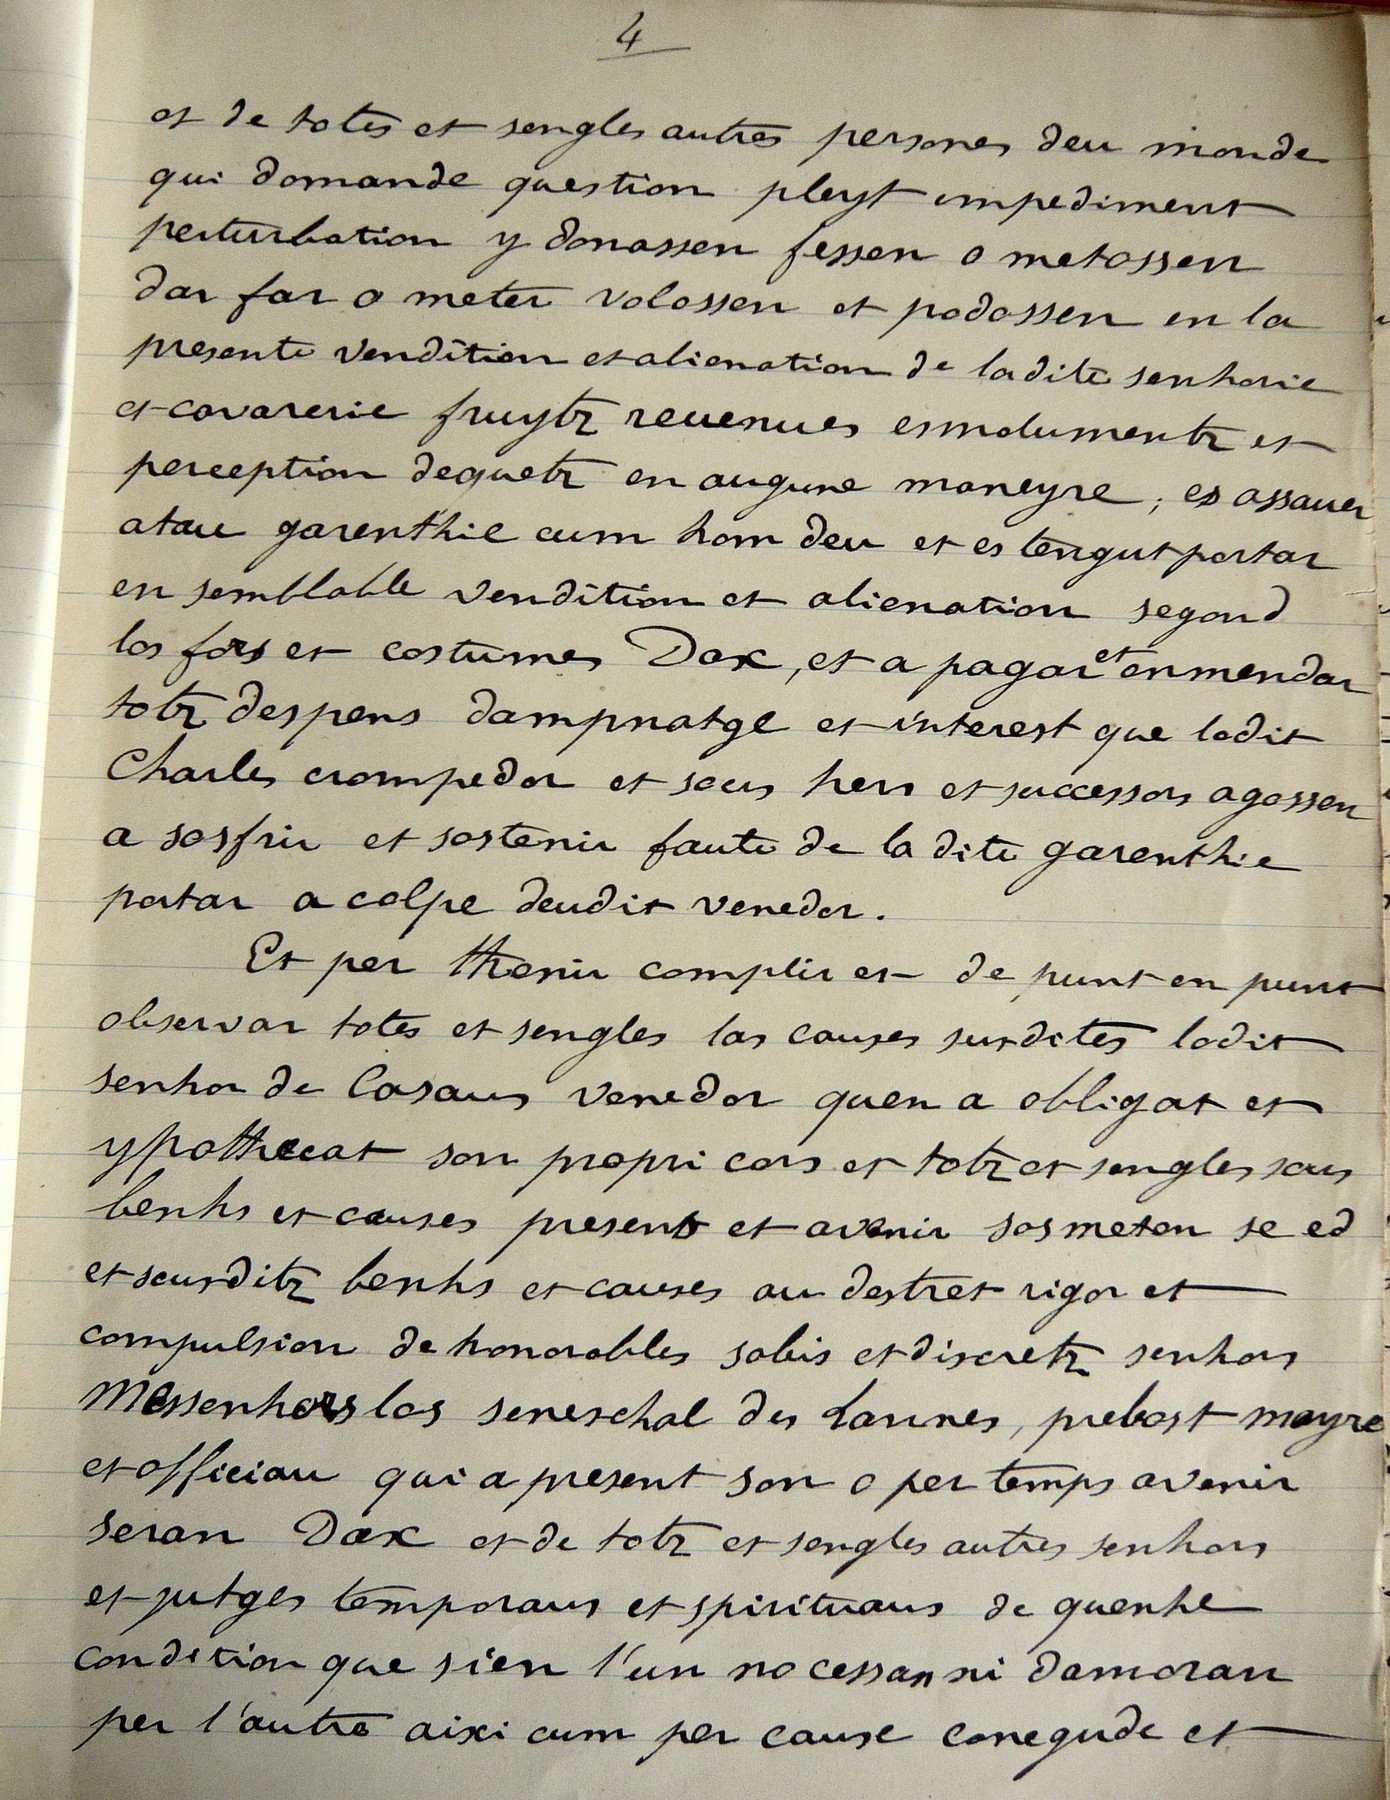 4
et de totes et sengles autres persones deu monde
qui domande question pleyt empediment
perturbation y donassen fessen o metossen
dar far o meter volossen et podossen en la
presente vendition et alienation de ladite senhorie
et cavarerie fruytz revenues esmolumentz et
perception dequetz en augune maneyre ; es assauer
atau garenthie cum hom deu et es tengut portar
en semblable vendition et alienation segond
los fors et costumes Dax, et a pagar et enmendar
totz despens dampnatge et interest que lodit
Charles crompedor et sous hers et successors agossen
a sosfrir et sostenir faute de la dite garenthie
portar a colpe deudit venedor.
Et per thenir complir et de punt en punt
observar totes et sengles las causes susdites lodit
senhor de Casaus venedor quen a obligat et
ypothecat son propri cors et totz et sengles sous
benhs et causes presens et avenir sosmeton se ed
et sousditz benhs et causes au destret rigor et
compulsion de honorables sabis et discretz senhors
Messenhors los seneschal des Lannes, prebost mayre
et officiau qui a present son o per temps avenir
seran Dax et de totz et sengles autres senhors
et jutges temporaus et spirituaus de quenhe
condition que sien l'un no cessan ni damoran
per l'autre aixi cum per cause conegude et